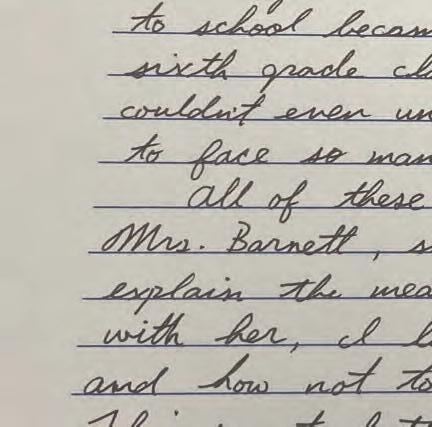 to school becam
sixth grade cla
couldn't even un
to face so man
All of these
Mrs. Barnett, s
explain the mea
with her, I l
and how not to